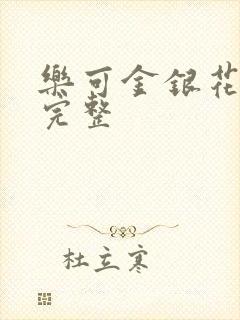 樂可金銀花
完整
杜立寒